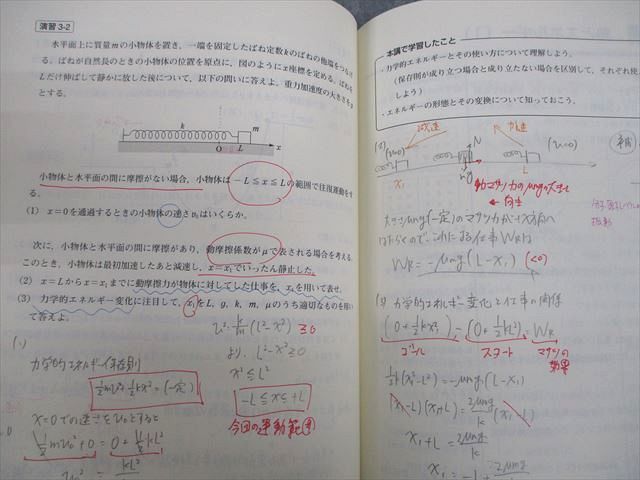 演習 3-2
水平面上に質量mの小物体を置き，一端を固定したばね定数kのばねの他端をつなげ
る。ばねが自然長のときの小物体の位置を原点に，図のようにx座標を定める。ばねを
Lだけ伸ばして静かに放した後について，以下の問いに答えよ。重力加速度の大きさをg
とする。
k
m
O
L
x
小物体と水平面の間に摩擦がない場合，小物体は−L≦x≦Lの範囲で往復運動をす
る。
(1) x=0を通過するときの小物体の速さv₀はいくらか。
次に，小物体と水平面の間に摩擦があり，動摩擦係数がμで表される場合を考える。
このとき，小物体は最初加速したあと減速し，x=x₁でいったん静止した。
(2) x=Lからx=x₁までに動摩擦力が物体に対してした仕事を，x₁を用いて表せ。
(3) 力学的エネルギー変化に注目して，x₁をL，g，k，m，μのうち適切なものを用い
て答えよ。
(1)
力学的エネルギー保存則
½mv²+½kx²=(一定)
x=0での速さをv₀とすると
½mv₀²+0=0+½kL²
v²=k/m(L²-x²)≧0
より、L²-x²≧0
x²≦L²
-L≦x≦+L
今回の運動範囲
本講で学習したこと
・力学的エネルギーとその使い方について理解しよう。
(保存則が成り立つ場合と成り立たない場合を区別して，それぞれ使
しよう)
・エネルギーの形態とその変換について知っておこう。
(2)
減速
加速
(v=0)
N
(v=0)
x₁
mg
L
動マサツ力のμmgの大きさ
←向き
大きさμmg(一定)のマサツ力が-x方向へ
はたらくので、これによる仕事WRは
WR=-μmg(L-x₁)
(<0)
(3) 力学的エネルギー変化と仕事の関係
(0+½kx₁²)-(0+½kL²)=WR
ゴール
スタート
マサツの
効果
½k(x₁²-L²)=-μmg(L-x₁)
(x₁-L)(x₁+L)=2μmg/k(x₁-L)
x₁+L=2μmg/k